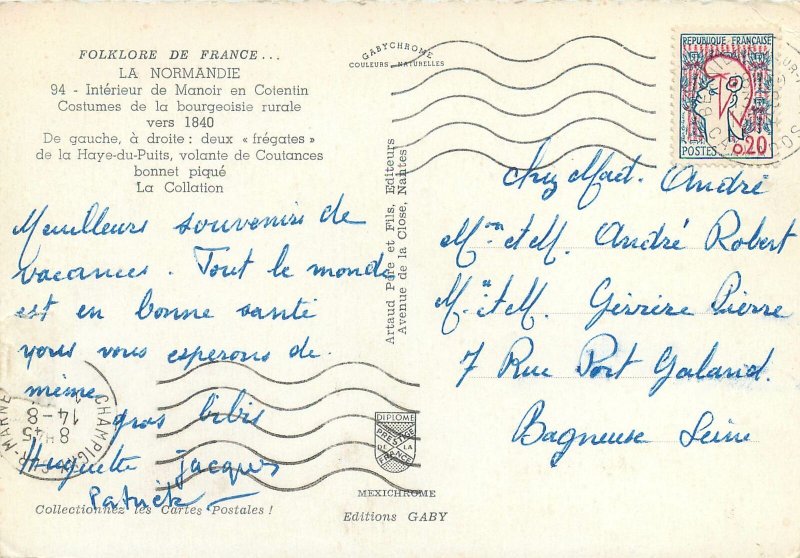 FOLKLORE DE FRANCE...
LA NORMANDIE
94 - Intérieur de Manoir en Cotentin
Costumes de la bourgeoisie rurale
vers 1840
De gauche, à droite : deux « frégates »
de la Haye-du-Puits, volante de Coutances
bonnet piqué
La Collation
GABYCHROME
COULEURS NATURELLES
Meuilleurs souvenirs de
vacances. Tout le monde
est en bonne santé
nous vous esperons de
même
gros bibis
Huguette Jacques
Patrick
Collectionnez les Cartes Postales !
CHAMPIGNY-SUR-MARNE
8 H 45
14-8
Artaud Père et Fils, Editeurs
Avenue de la Close, Nantes
DIPLOME
PRESTIGE
DE LA
FRANCE
MEXICHROME
Editions GABY
REPUBLIQUE FRANÇAISE
POSTES 0,20
André
Mme et M. André Robert
Me et M. Gérrire Pierre
7 Rue Port Galand
Bagneuse Seine